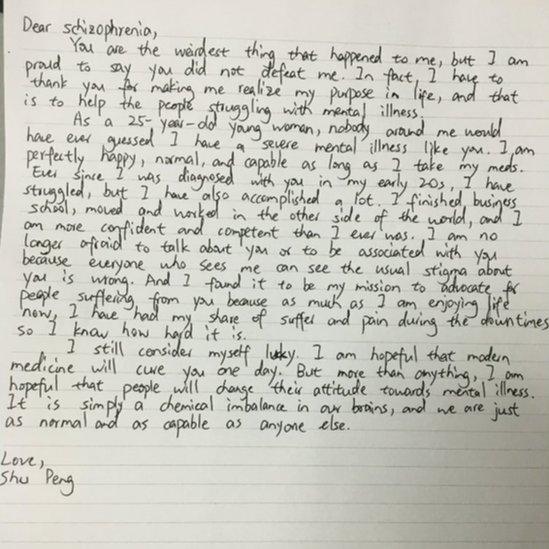 Dear schizophrenia,
You are the weirdest thing that happened to me, but I am
proud to say you did not defeat me. In fact, I have to
thank you for making me realize my purpose in life, and that
is to help the people struggling with mental illness.
As a 25-year-old young woman, nobody around me would
have ever guessed I have a severe mental illness like you. I am
perfectly happy, normal, and capable as long as I take my meds.
Ever since I was diagnosed with you in my early 20s, I have
struggled, but I have also accomplished a lot. I finished business
school, moved and worked in the other side of the world, and I
am more confident and competent than I ever was. I am no
longer afraid to talk about you or to be associated with you
because everyone who sees me can see the usual stigma about
you is wrong. And I found it to be my mission to advocate for
people suffering from you because as much as I am enjoying life
now, I have had my share of suffer and pain during the downtimes
so I know how hard it is.
I still consider myself lucky. I am hopeful that modern
medicine will cure you one day. But more than anything, I am
hopeful that people will change their attitude towards mental illness.
It is simply a chemical imbalance in our brains, and we are just
as normal and as capable as anyone else.
Love,
Shu Peng